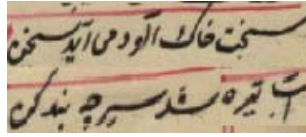 سخت خاک آلود می آید سخن
آب تیره شد سر چه بند کن